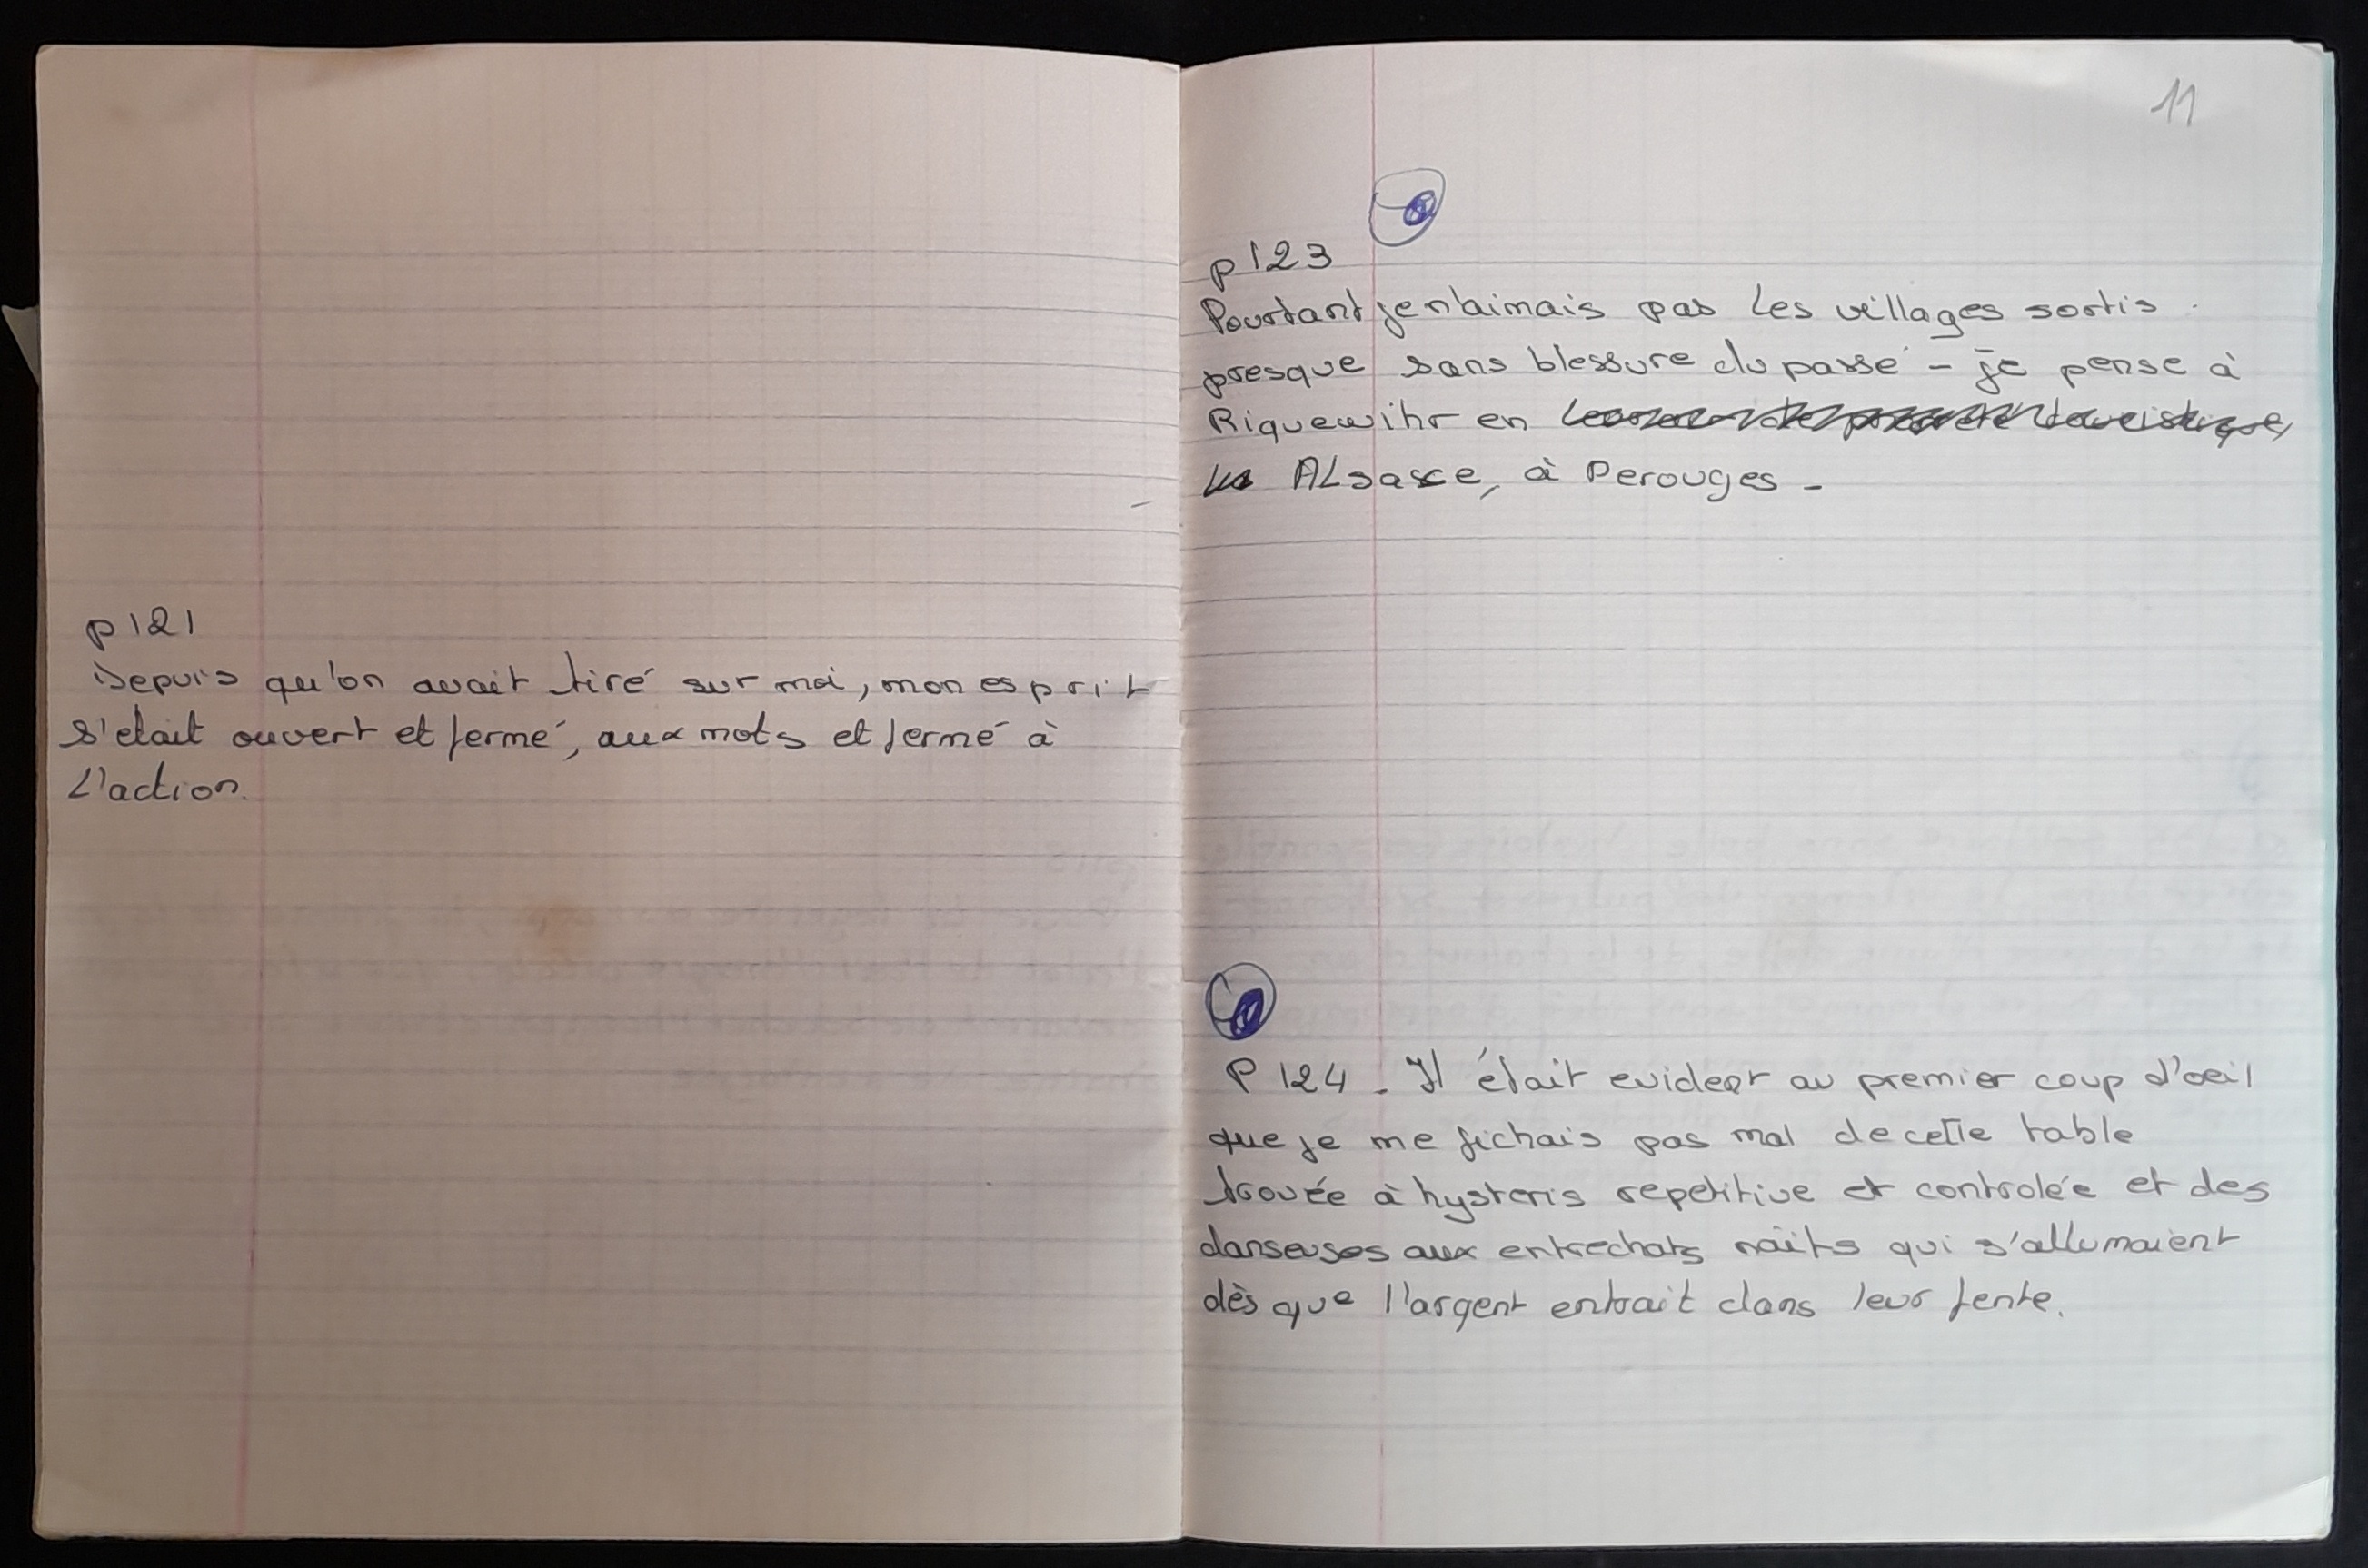 p 121
Depuis qu'on avait tiré sur moi, mon esprit
s'etait ouvert et fermé, aux mots et fermé à
L'action.
11
p 123
Pourtant je n'aimais pas les villages sortis
presque sans blessure du passé - je pense à
Riquewihr en
ALsasce, à Perouges -
P 124 - Il était evident au premier coup d'oeil
que je me fichais pas mal de cette table
trouée à hysteris repetitive et controlée et des
danseuses aux entrechats qui s'allumaient
dès que l'argent entrait dans leur fente.